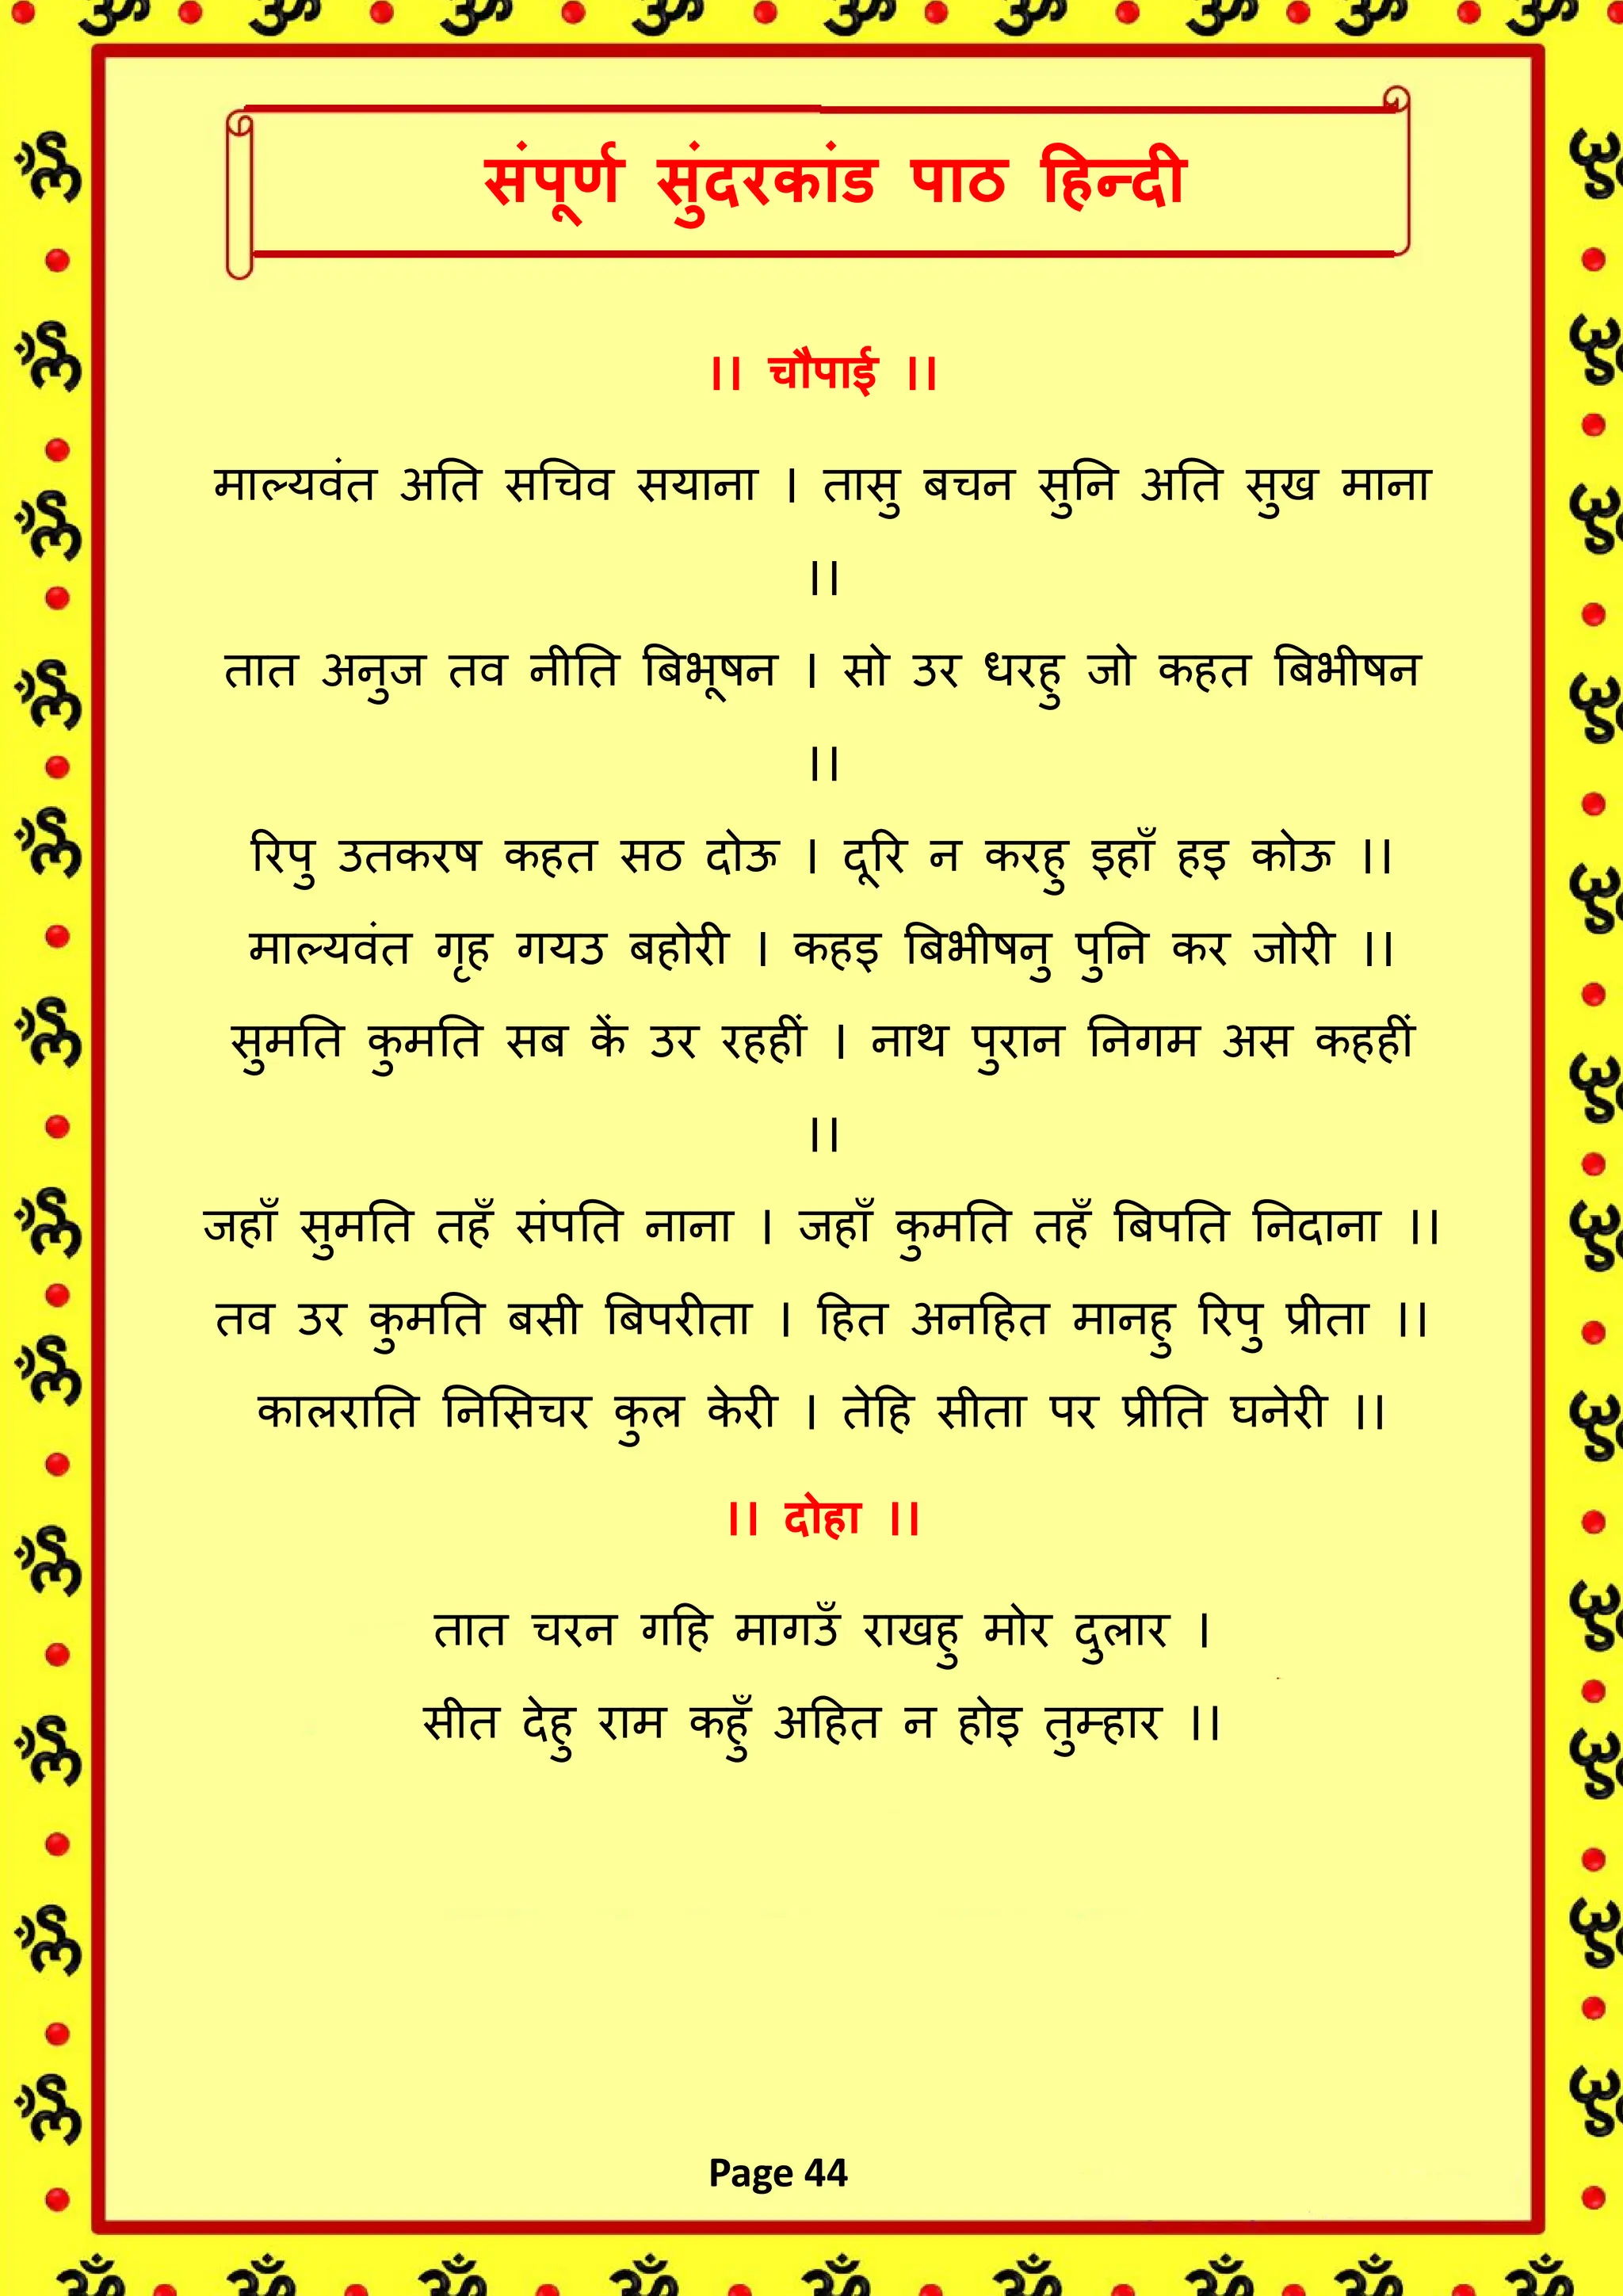 संपूर्ण सुंदरकांड पाठ हिन्दी
।। चौपाई ।।
माल्यवंत अति सचिव सयाना । तासु बचन सुनि अति सुख माना
।।
तात अनुज तव नीति बिभूषन । सो उर धरहु जो कहत बिभीषन
।।
रिपु उतकरष कहत सठ दोऊ । दूरि न करहु इहाँ हइ कोऊ ।।
माल्यवंत गृह गयउ बहोरी । कहइ बिभीषनु पुनि कर जोरी ।।
सुमति कुमति सब कें उर रहहीं । नाथ पुरान निगम अस कहहीं
।।
जहाँ सुमति तहँ संपति नाना । जहाँ कुमति तहँ बिपति निदाना ।।
तव उर कुमति बसी बिपरीता । हित अनहित मानहु रिपु प्रीता ।।
कालराति निसिचर कुल केरी । तेहि सीता पर प्रीति घनेरी ।।
।। दोहा ।।
तात चरन गहि मागउँ राखहु मोर दुलार ।
सीत देहु राम कहुँ अहित न होइ तुम्हार ।।
Page 44